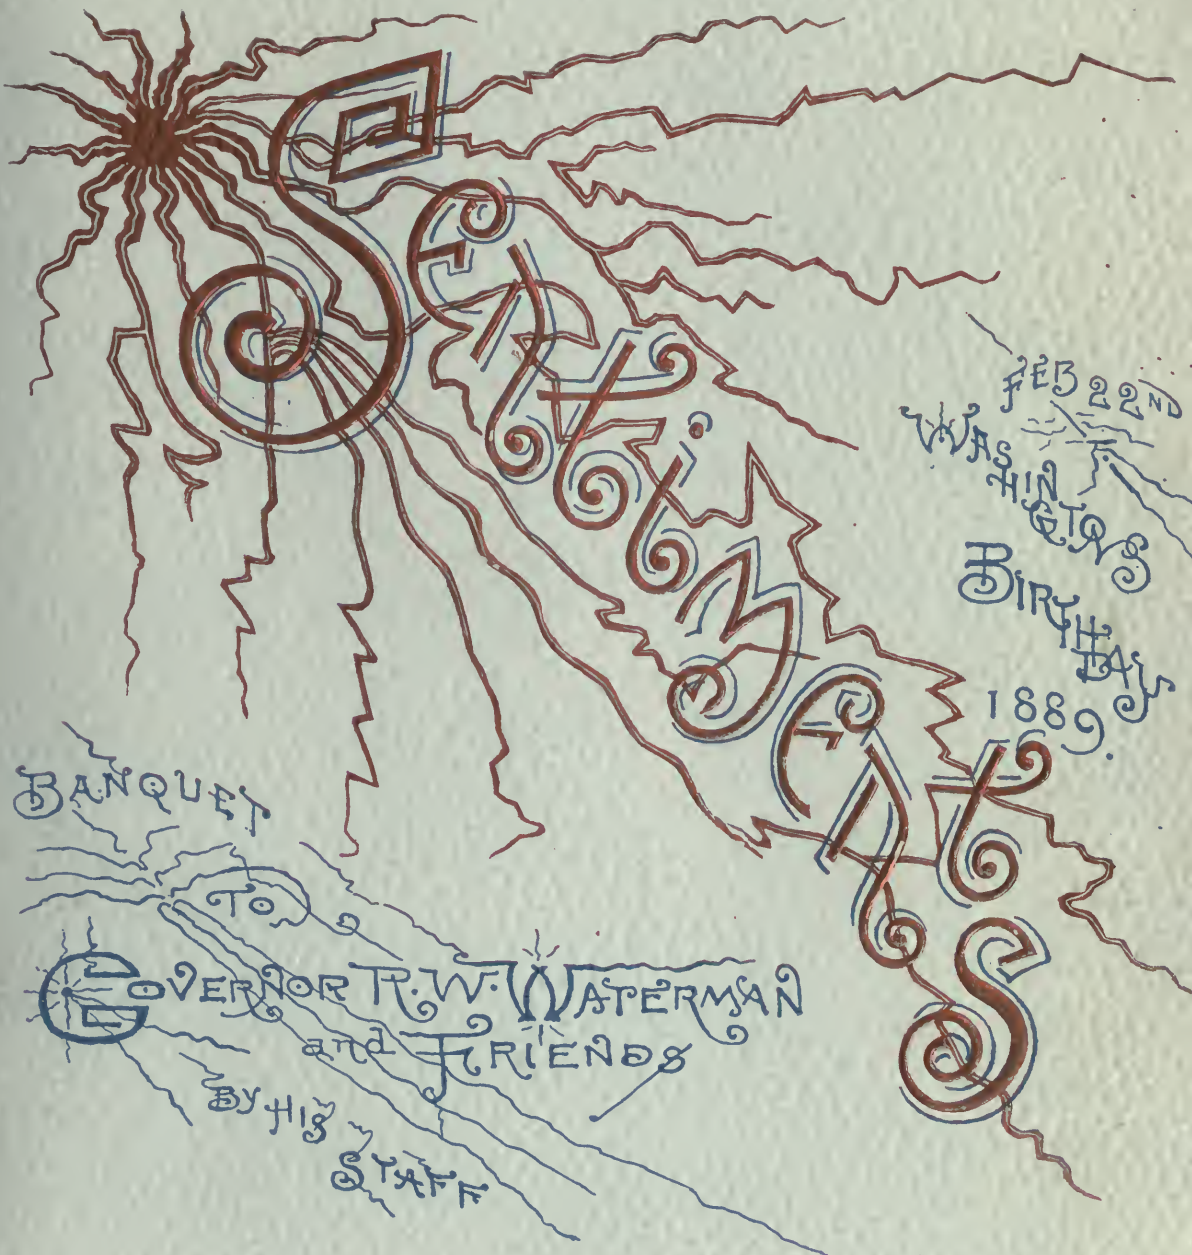 SENTIMENTS
FEB 22ND
WASHINGTONS
BIRTHDAY
1889.
BANQUET
TO
GOVERNOR R. W. WATERMAN
and FRIENDS
BY HIS
STAFF